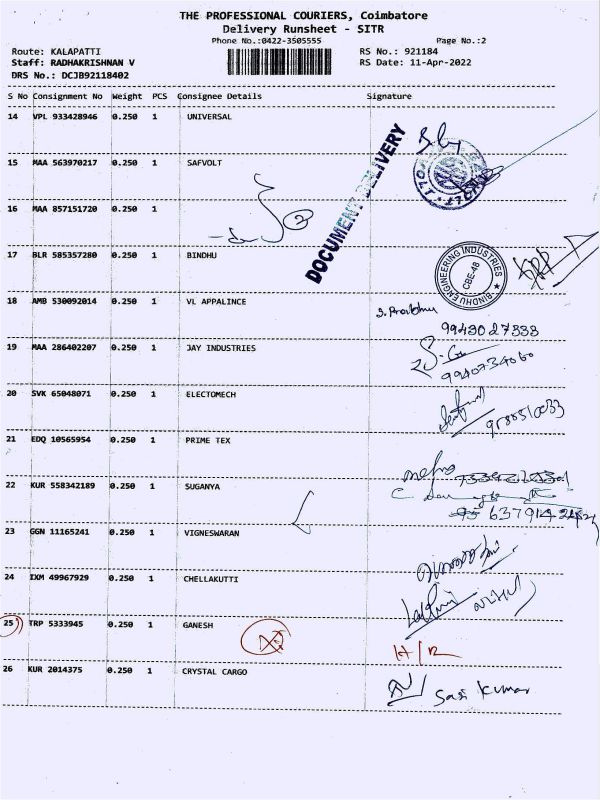 THE PROFESSIONAL COURIERS, Coimbatore
Delivery Runsheet - SITR
Phone No.:0422-3505555 Page No.:2
Route: KALAPATTI RS No.: 921184
Staff: RADHAKRISHNAN V RS Date: 11-Apr-2022
DRS No.: DCJB92118402
S No Consignment No Weight PCS Consignee Details Signature
14 VPL 933428946 0.250 1 UNIVERSAL
DOCUMENT DELIVERY
15 MAA 563970217 0.250 1 SAFVOLT
16 MAA 857151720 0.250 1
17 BLR 585357280 0.250 1 BINDHU
BINDHU ENGINEERING INDUSTRIES
CBE-48
18 AMB 530092014 0.250 1 VL APPALINCE
9943027333
19 MAA 286402207 0.250 1 JAY INDUSTRIES
9940734060
20 SVK 65048071 0.250 1 ELECTOMECH
21 EDQ 10565954 0.250 1 PRIME TEX
22 KUR 558342189 0.250 1 SUGANYA
23 GGN 11165241 0.250 1 VIGNESWARAN
24 IXM 49967929 0.250 1 CHELLAKUTTI
25 TRP 5333945 0.250 1 GANESH
H/R
26 KUR 2014375 0.250 1 CRYSTAL CARGO
Sasi Kumar